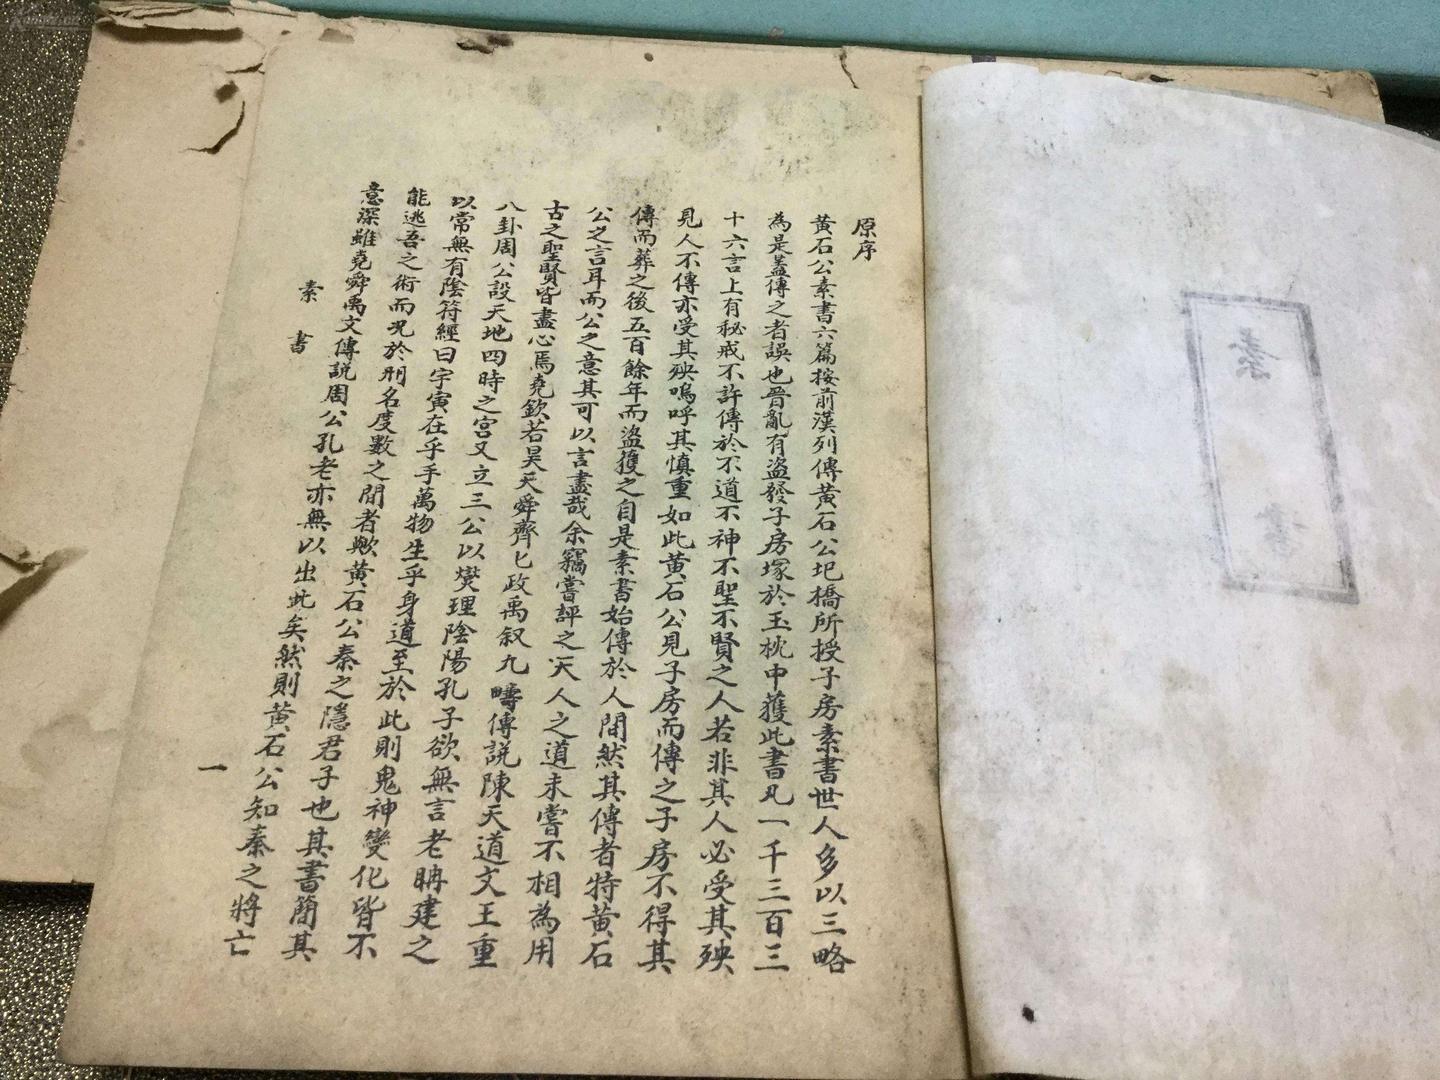 原序
黃石公素書六篇按前漢列傳黃石公圯橋所授子房素書世人多以三略
為是蓋傳之者誤也晉亂有盜發子房塚於玉枕中獲此書凡一千三百三
十六言上有秘戒不許傳於不道不神不聖不賢之人若非其人必受其殃
見人不傳亦受其殃嗚呼其慎重如此黃石公見子房而傳之子房不得其
傳而葬之後五百餘年而盜獲之自是素書始傳於人間然其傳者特黃石
公之言耳而公之意其可以言盡哉余竊嘗評之天人之道未嘗不相為用
古之聖賢皆盡心焉堯欽若昊天舜齊七政禹叙九疇傅説陳天道文王重
八卦周公設天地四時之宮又立三公以燮理陰陽孔子欲無言老聃建之
以常無有陰符經曰宇宙在乎手萬物生乎身道至於此則鬼神變化皆不
能逃吾之術而况於刑名度數之間者歟黃石公秦之隱君子也其書簡其
意深雖堯舜禹文傅説周公孔老亦無以出此矣然則黃石公知秦之將亡
素書
一
素書